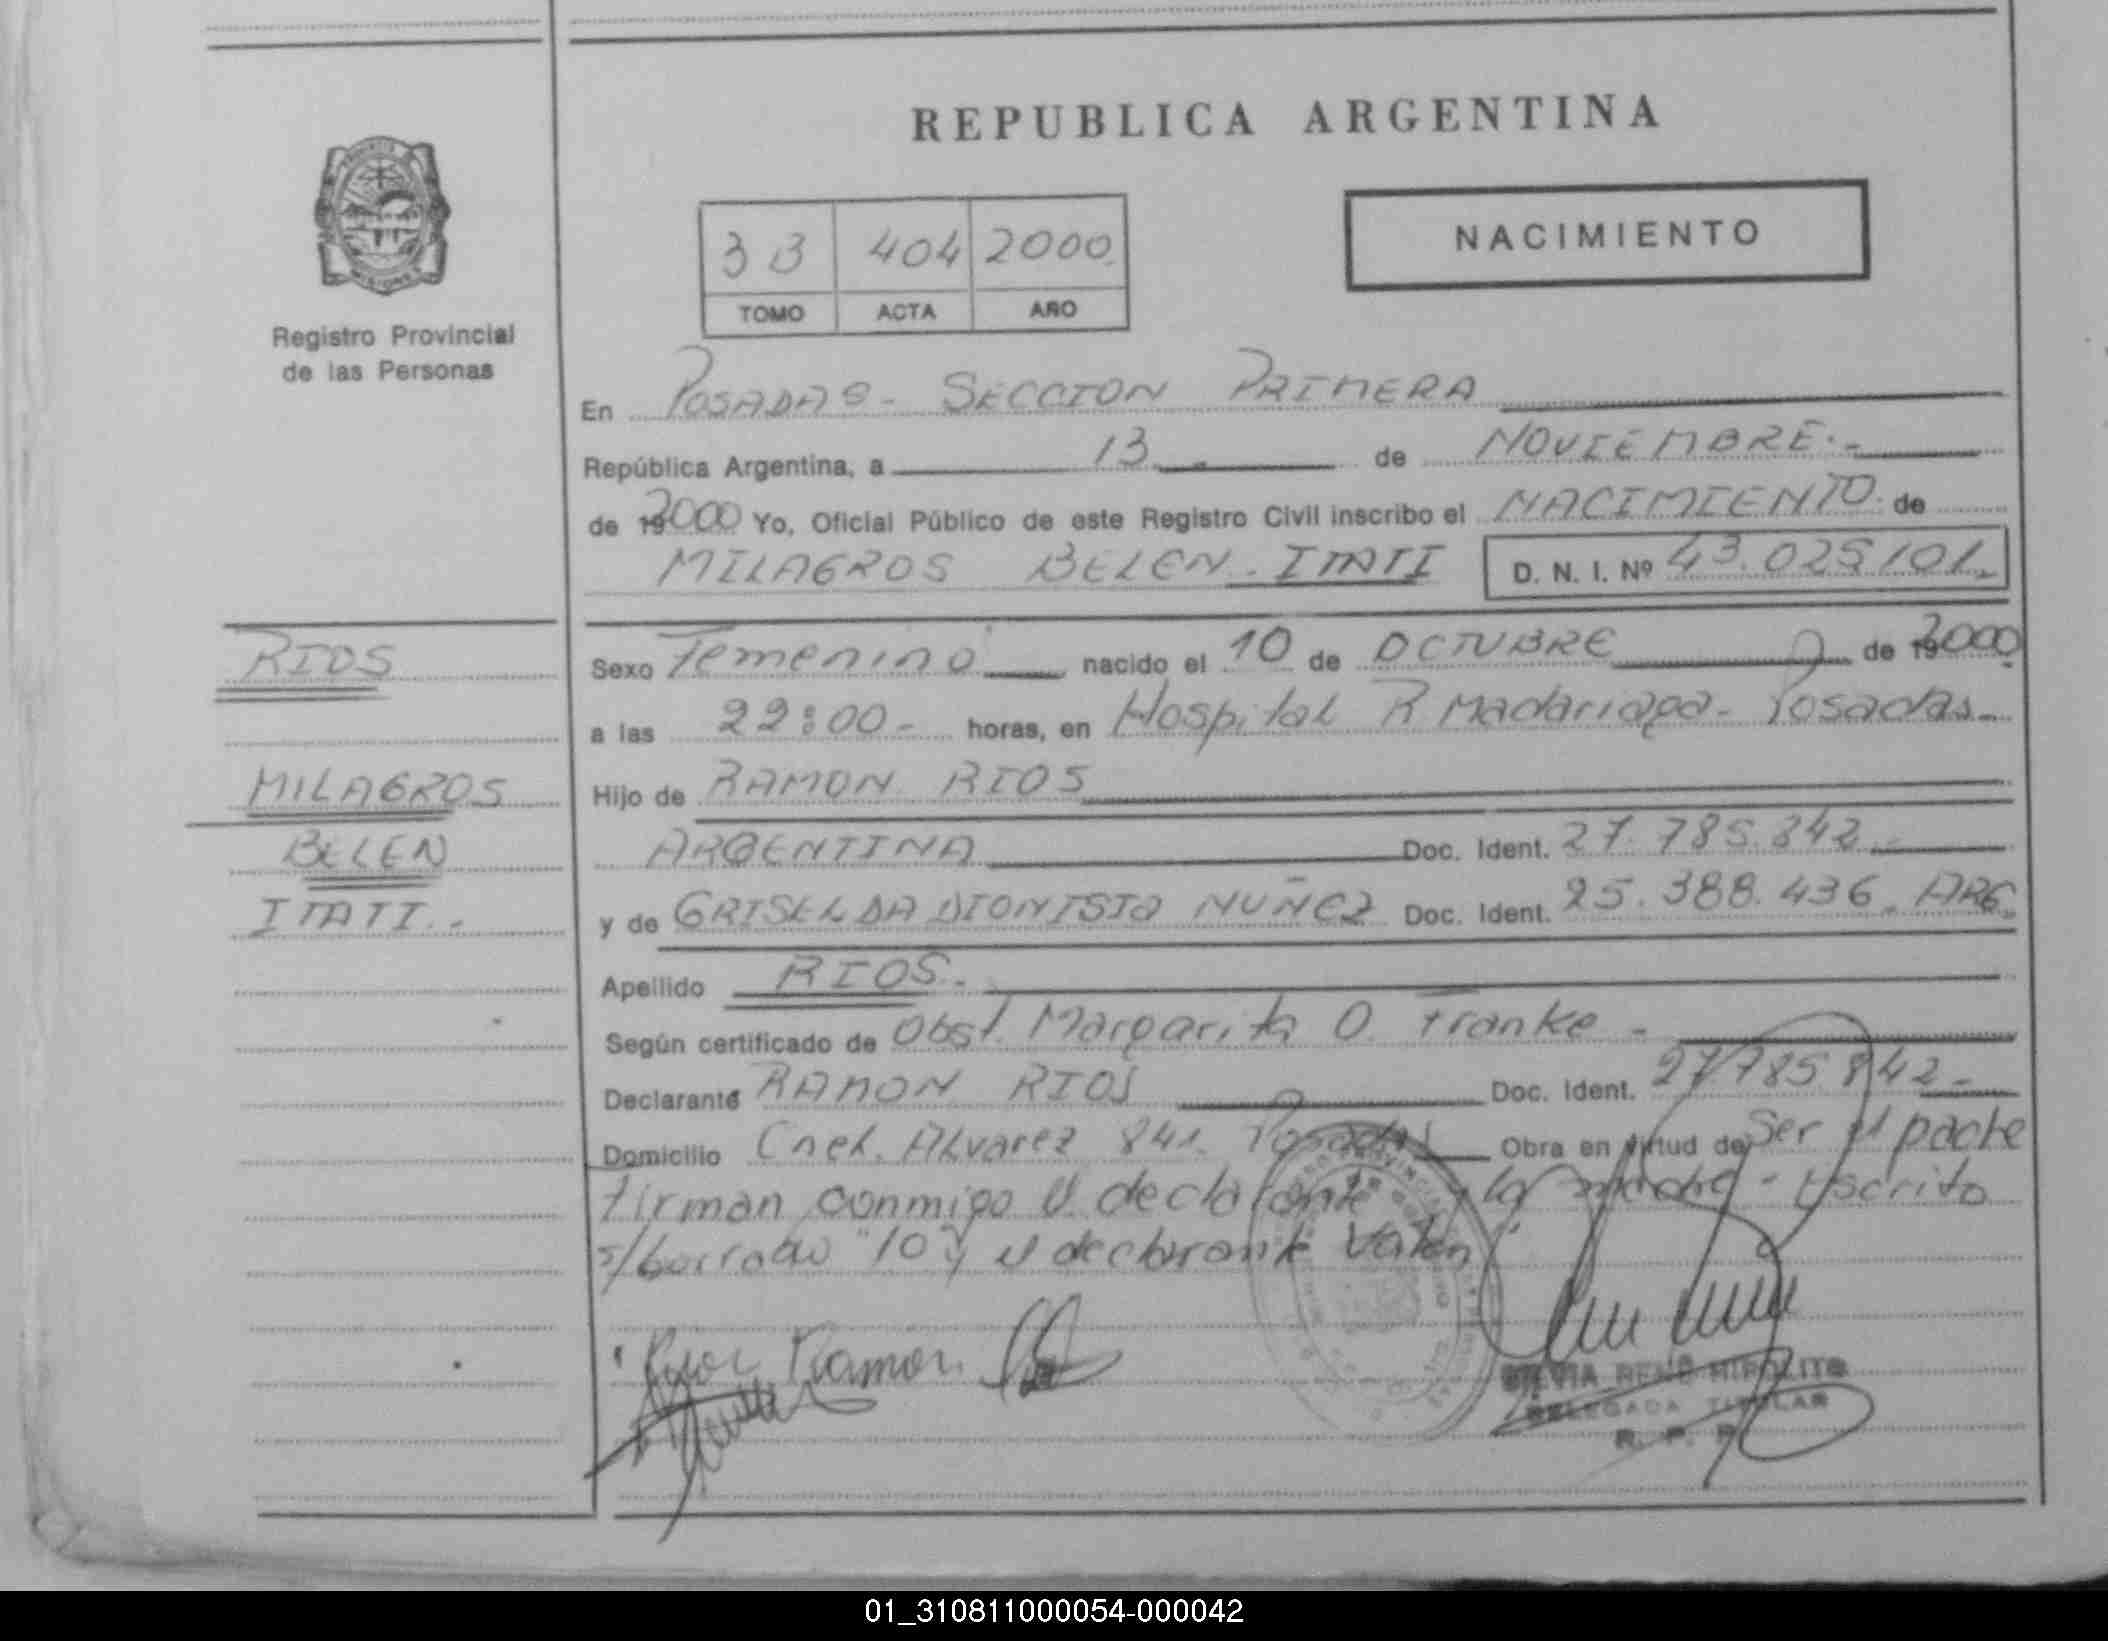 REPUBLICA ARGENTINA
NACIMIENTO
3 B 404 2000
TOMO ACTA AÑO
Registro Provincial
de las Personas
En POSADAS - SECCION PRIMERA
República Argentina, a 13 de NOVIEMBRE.-
de 2000 Yo, Oficial Público de este Registro Civil inscribo el NACIMIENTO de
MILAGROS BELEN - ITATI D. N. I. Nº 43.025.101.
RIOS
Sexo Femenino nacido el 10 de OCTUBRE de 2000
a las 22:00 - horas, en Hospital R Madariaga - Posadas -
MILAGROS
Hijo de RAMON RIOS
BELEN
ARGENTINA Doc. Ident. 27.785.842 -
ITATI.-
y de GRISELDA DIONISIA NUÑEZ Doc. Ident. 25.388.436. ARG.
Apellido RIOS.
Según certificado de Obst. Margarita O. Franke -
Declarante RAMON RIOS Doc. Ident. 27.785.842 -
Domicilio Cnel. Alvarez 841. Posadas Obra en virtud de Ser el padre
Firman conmigo el declarante y la madre - Escrito
s/borrado "10" y el declarante Valen
Rios Ramon
SILVIA RENE HIPOLITO
DELEGADA TITULAR
R. P. P.
01_310811000054-000042